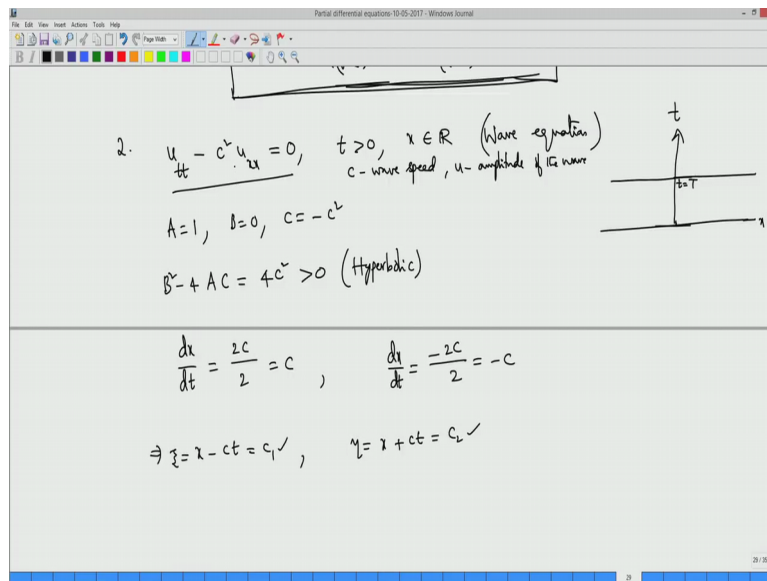 Partial differential equations-10-05-2017 - Windows Journal
File Edit View Insert Actions Tools Help
Page Width
B I
2. u_tt - c² u_xx = 0, t>0, x ∈ ℝ (Wave equation)
c - wave speed, u - amplitude of the wave
t
t=T
x
A=1, B=0, C=-c²
B²-4AC = 4c² >0 (Hyperbolic)
dx/dt = 2c/2 = c, dx/dt = -2c/2 = -c
⇒ ξ = x - ct = c₁ ✓, η = x + ct = c₂ ✓
29 / 35
29